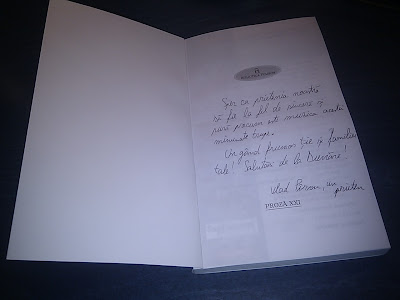 Sper ca prietenia noastră
să fie la fel de sinceră și
pură precum este muzica acestor
minunate trupe.
Un gând frumos ție și familiei
tale! Salutări de la Dunăre!
Vlad, un
prieten
PROZĂ XXI